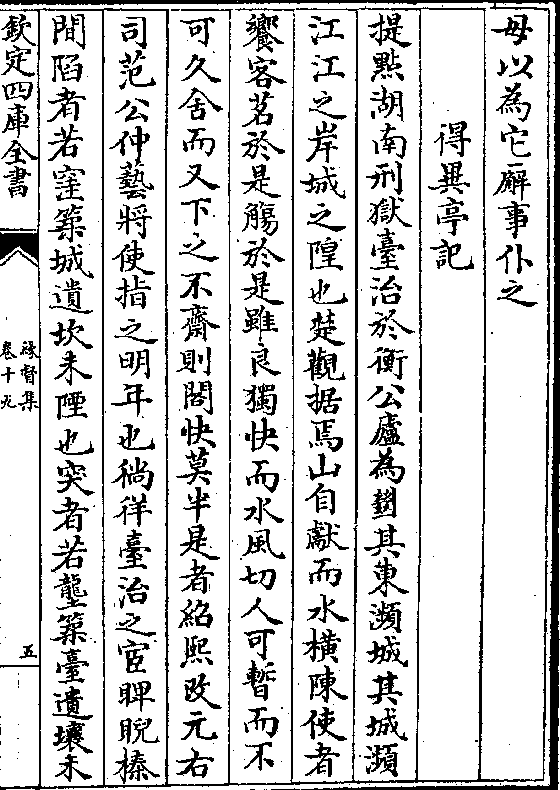 毋以為它廨事仆之
得巽亭記
提點湖南刑獄臺治於衡公廬為其東瀕城其城瀕
江江之岸城之隍也楚觀据焉山自獻而水橫陳使者
饗客茗於是觴於是雖良獨快而水風切人可暫而不
可久舍而又下之不齋則閤快莫半是者紹熙改元右
司范公仲藝將使指之明年也徜徉臺治之宧睥睨榛
間陷者若窪築城遺坎未陻也突者若壟築臺遺壤未
欽定四庫全書
緣督集
卷十九
五